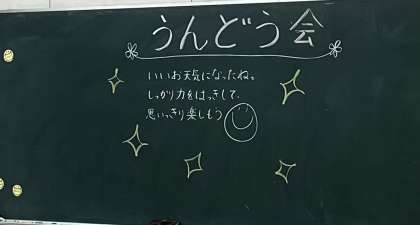 うんどう会
いいお天気になったね。
しっかり力をはっきして、
思いっきり楽しもう